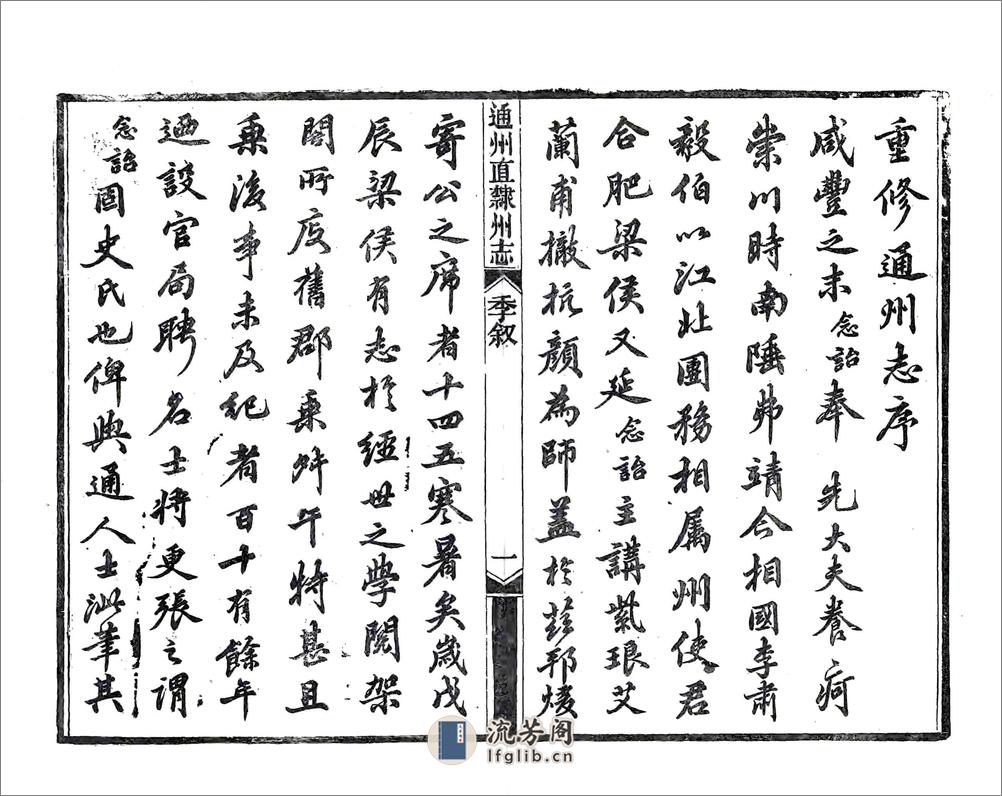 重修通州志序
咸豐之末念詒奉 先大夫養疴
崇川時南陲弗靖今相國李肅
毅伯以江北團務相属州使君
合肥梁侯又延念詒主講紫琅艾
蘭甫撤抗顏為師蓋於茲邦煖
通州直隸州志
季叙
一
寄公之席者十四五寒暑矣歲戊
辰梁侯有志於經世之學閱架
閣所庋舊郡乘舛午特甚且
乘後事未及紀者百十有餘年
迺設官局聘名士將更張之謂
念詒固史氏也俾與通人士泚筆其
流芳阁
lfglib.cn